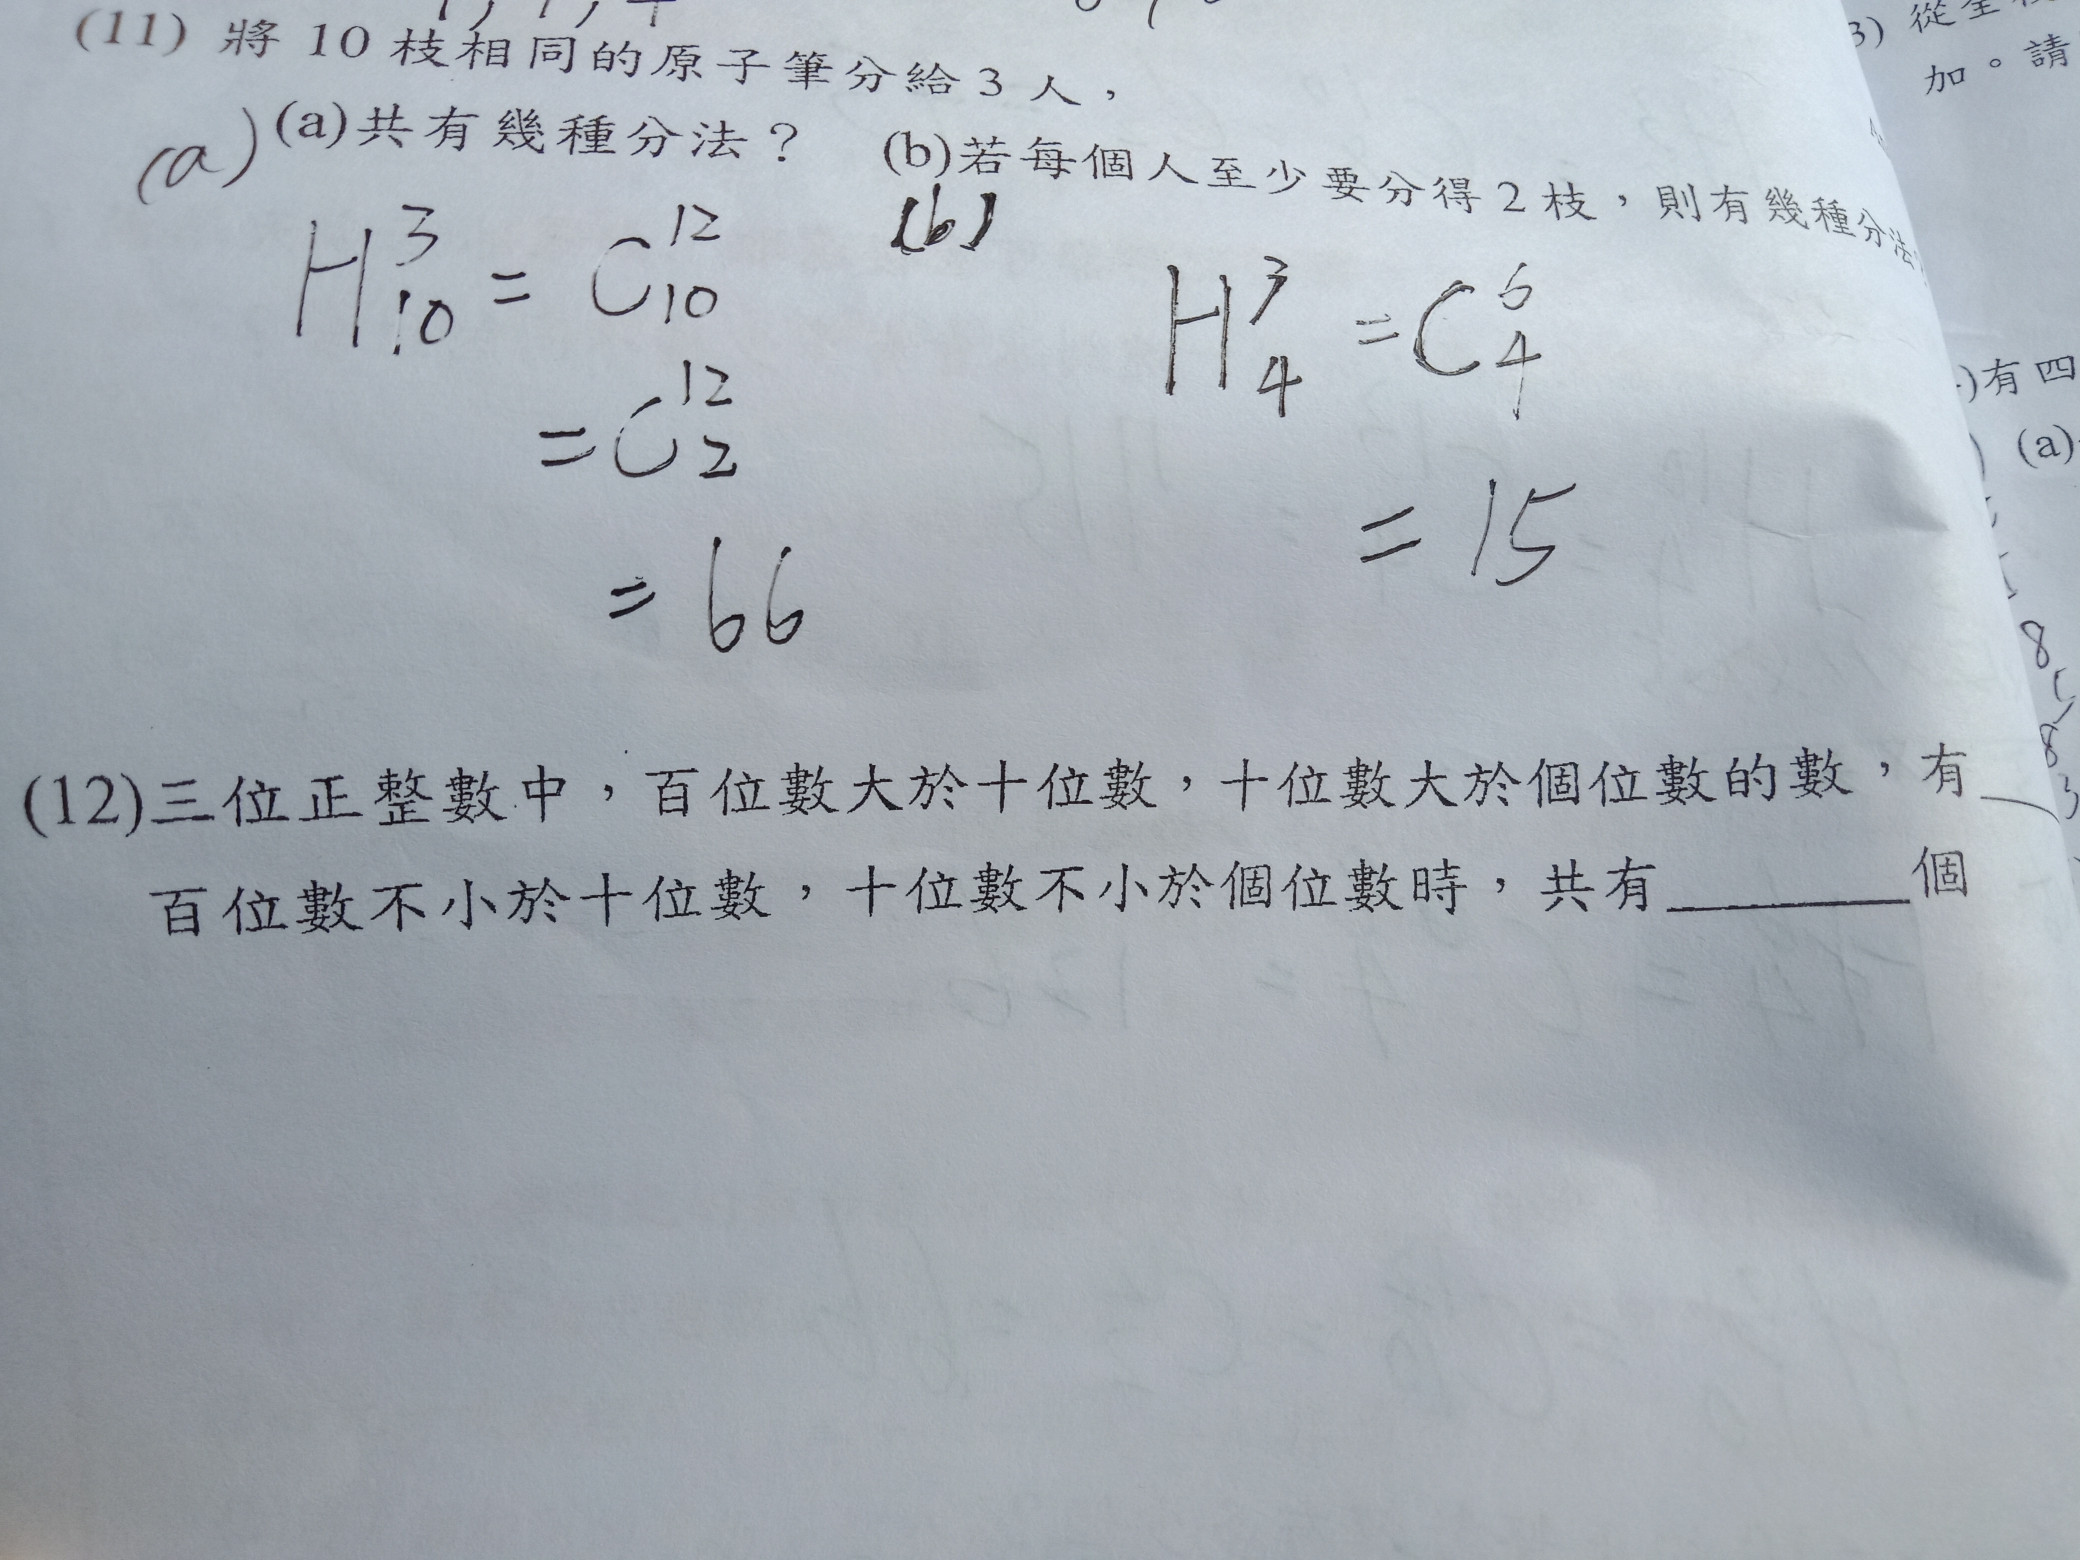 (11) 將 10 枝相同的原子筆分給 3 人，
(a) (a)共有幾種分法？ (b)若每個人至少要分得 2 枝，則有幾種分法
(b)
H³₁₀ = C¹²₁₀
= C¹²₂
= 66
H³₄ = C⁶₄
= 15
(12)三位正整數中，百位數大於十位數，十位數大於個位數的數，有
百位數不小於十位數，十位數不小於個位數時，共有________個
3) 從全
加。請
)有四
(a)
8
8
3